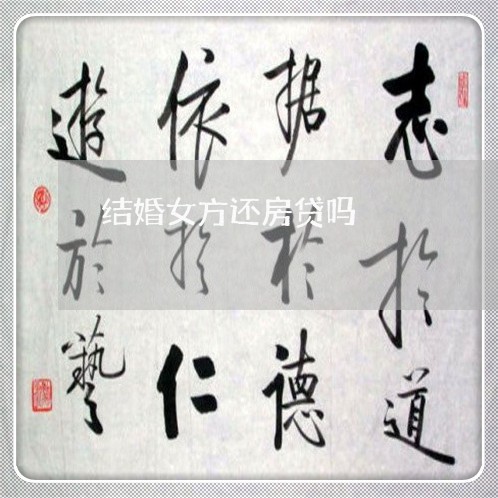 志扵道
据於德
依扵仁
遊於藝
结婚女方还房贷吗